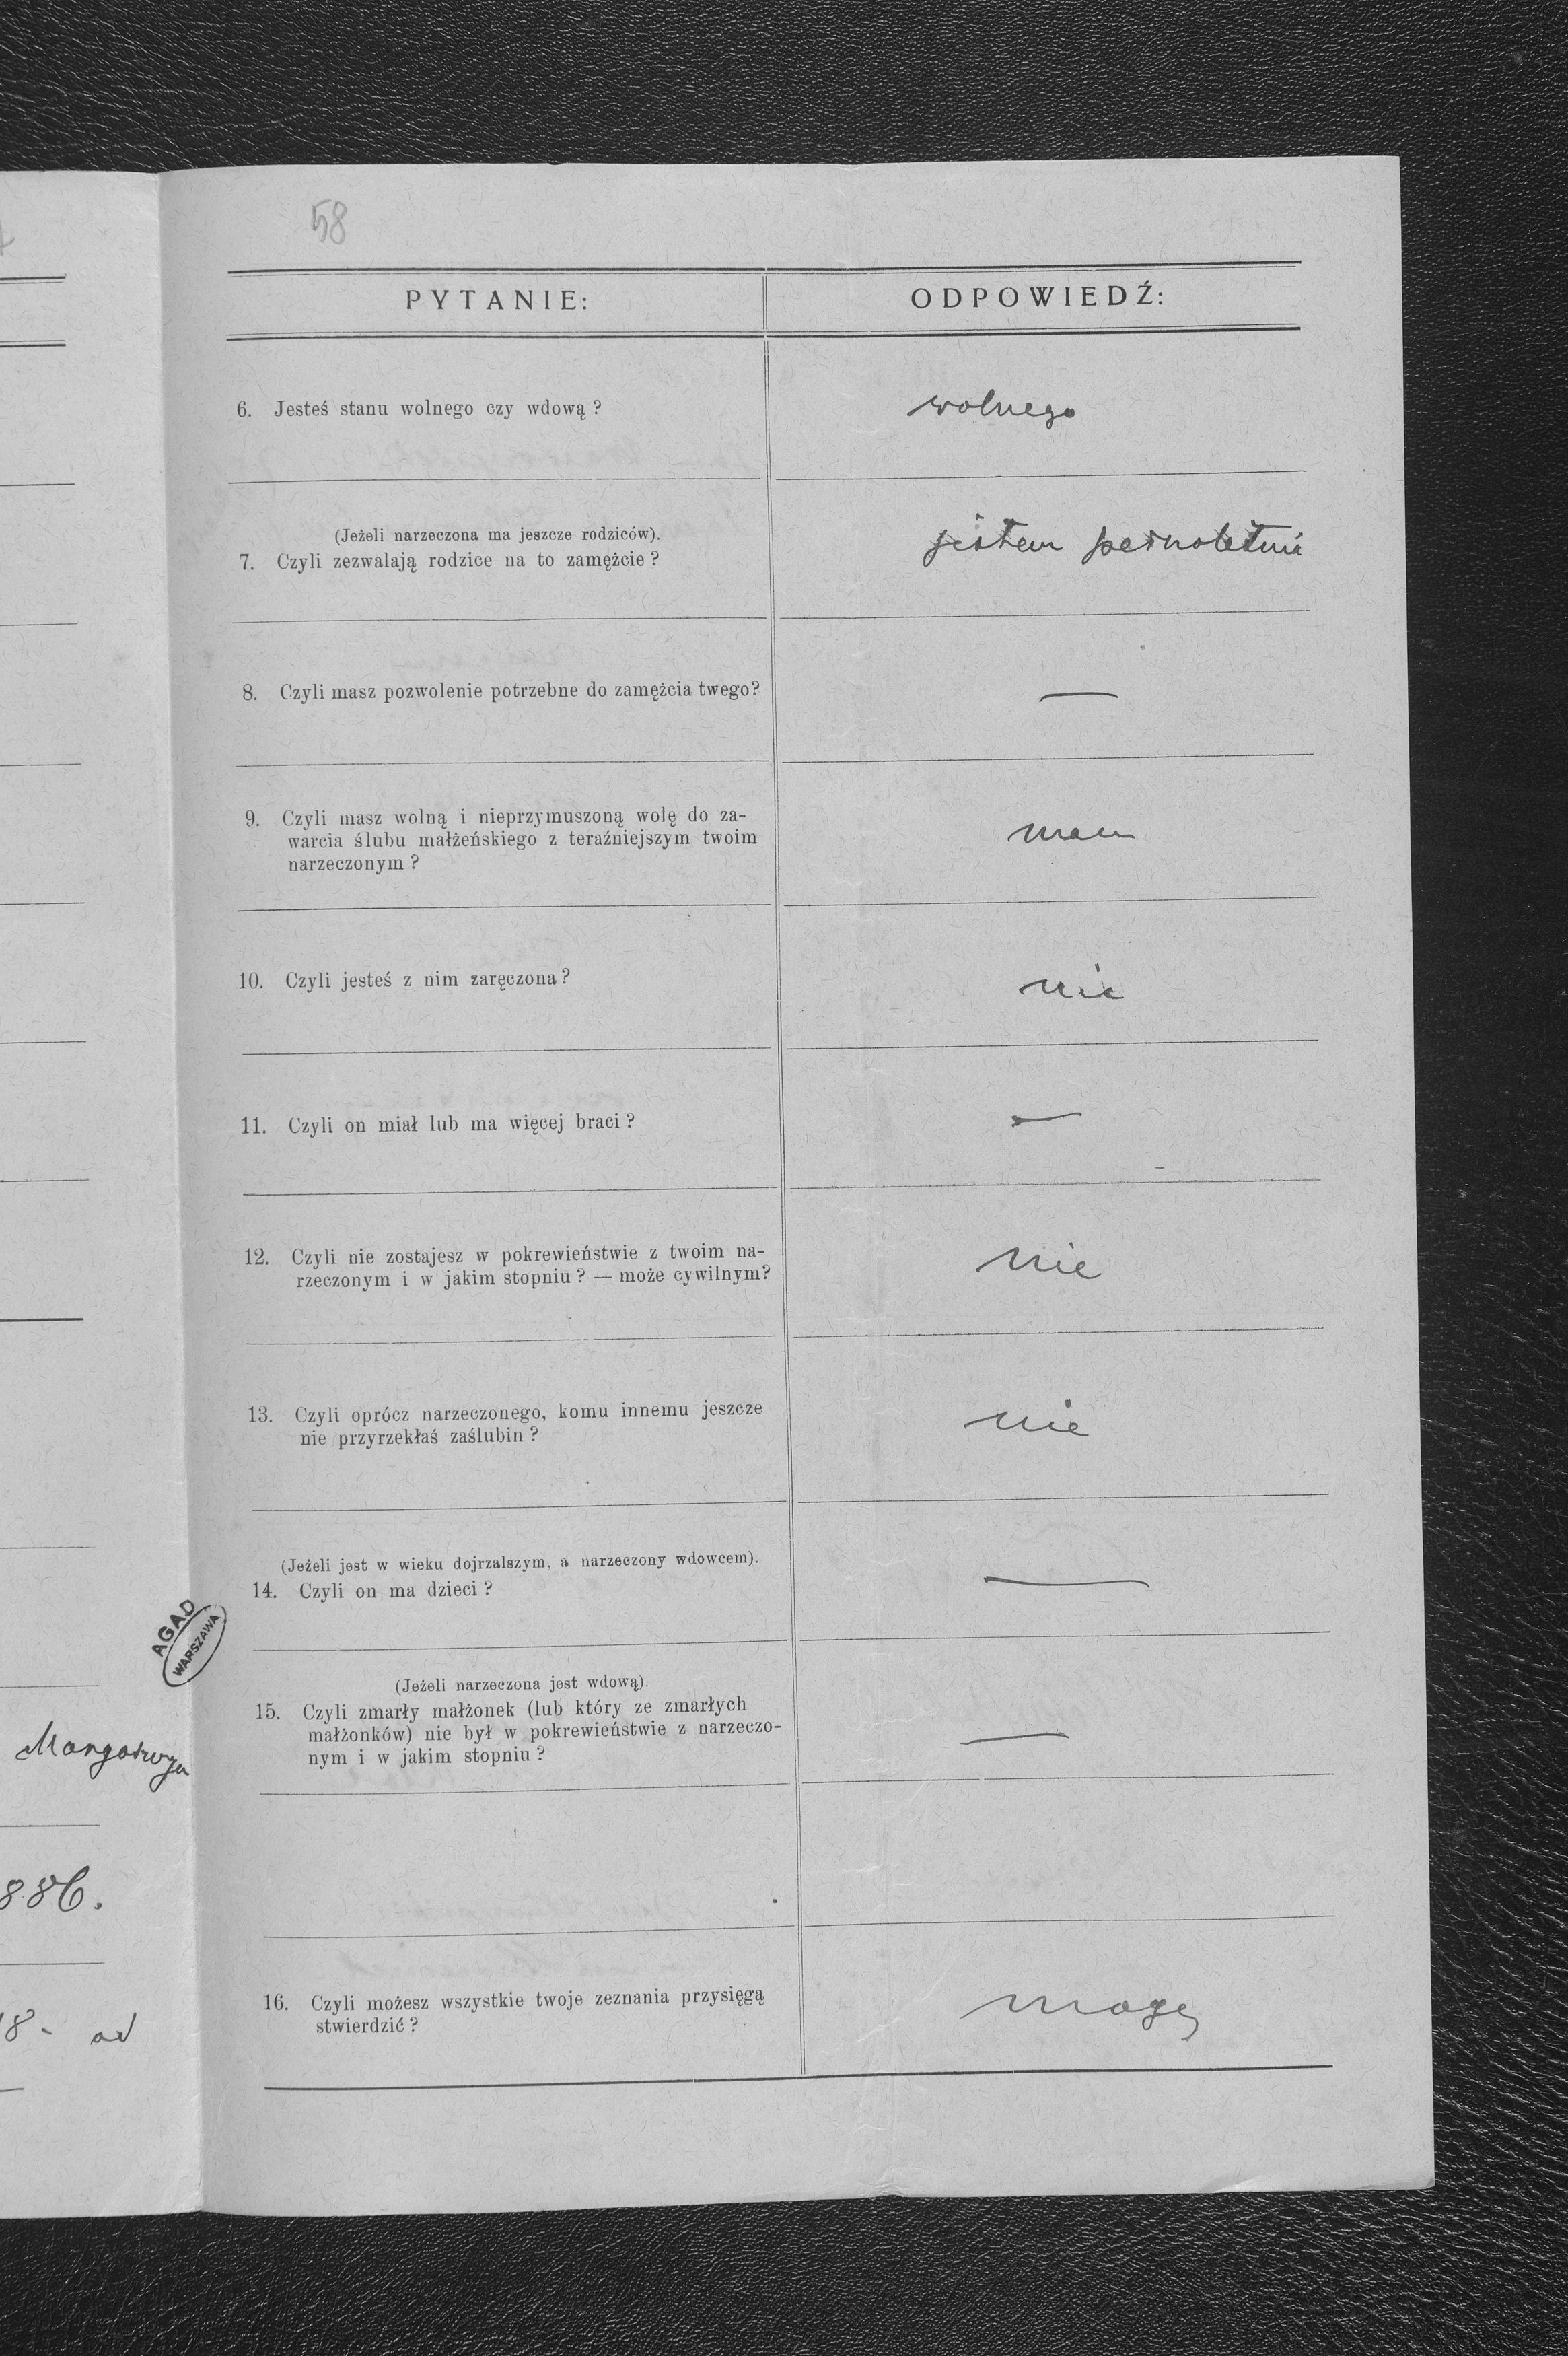 58
PYTANIE:
ODPOWIEDŹ:
6. Jesteś stanu wolnego czy wdową?
wolnego
(Jeżeli narzeczona ma jeszcze rodziców).
7. Czyli zezwalają rodzice na to zamężcie?
jestem pełnoletnia
8. Czyli masz pozwolenie potrzebne do zamężcia twego?
—
9. Czyli masz wolną i nieprzymuszoną wolę do za-
warcia ślubu małżeńskiego z teraźniejszym twoim
narzeczonym?
mam
10. Czyli jesteś z nim zaręczona?
nie
11. Czyli on miał lub ma więcej braci?
—
12. Czyli nie zostajesz w pokrewieństwie z twoim na-
rzeczonym i w jakim stopniu? — może cywilnym?
nie
13. Czyli oprócz narzeczonego, komu innemu jeszcze
nie przyrzekłaś zaślubin?
nie
(Jeżeli jest w wieku dojrzalszym, a narzeczony wdowcem).
14. Czyli on ma dzieci?
—
(Jeżeli narzeczona jest wdową).
15. Czyli zmarły małżonek (lub który ze zmarłych
małżonków) nie był w pokrewieństwie z narzeczo-
nym i w jakim stopniu?
—
16. Czyli możesz wszystkie twoje zeznania przysięgą
stwierdzić?
mogę
AGAD
WARSZAWA
886.
8 - od